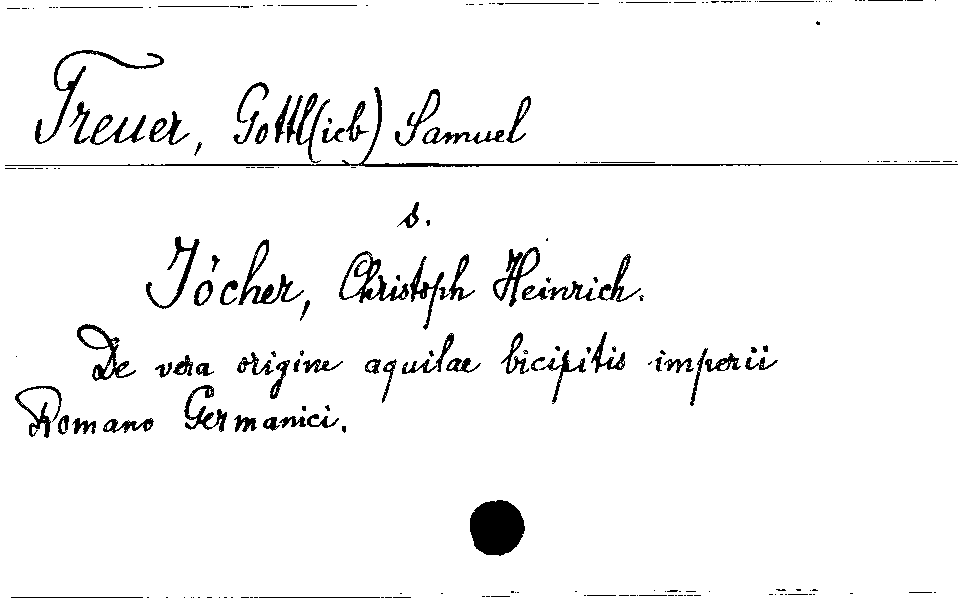 Treuer, Gottl(ieb) Samuel
s.
Jöcher, Christoph Heinrich.
De vera origine aquilae bicipitis imperii
Romano Germanici.